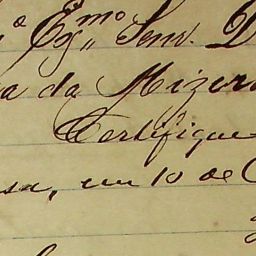 Exmo Senr. D
a da Mizeri
Certifique
sa, em 10 de